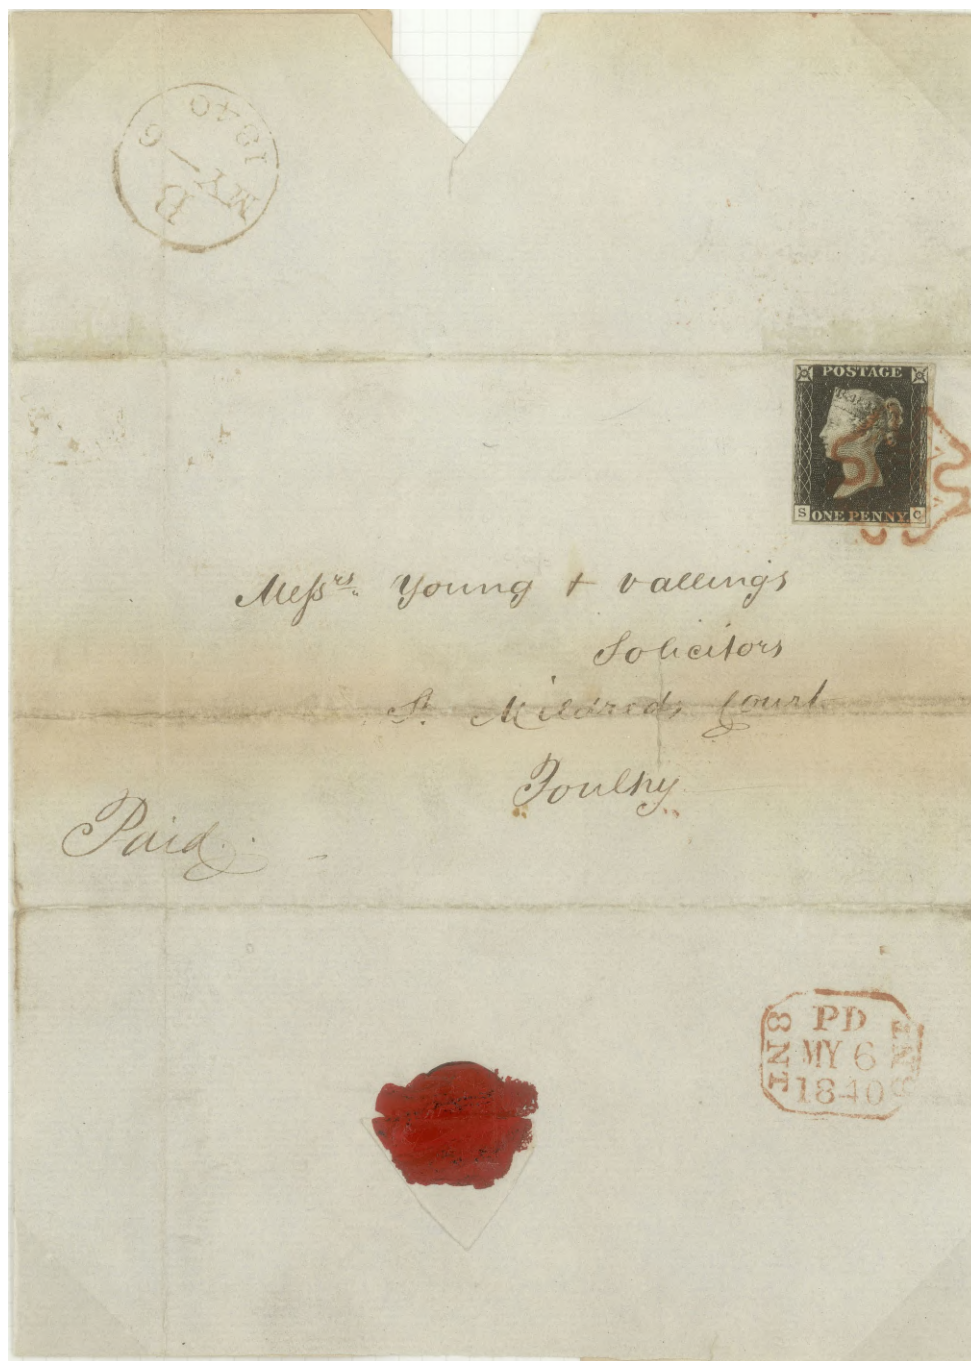 B
MY 6
1840
POSTAGE
S ONE PENNY C
Messrs. Young + Vallings
Solicitors
St. Mildreds Court
Poultry
Paid.
PD
MY 6
1840
8NT
8NT